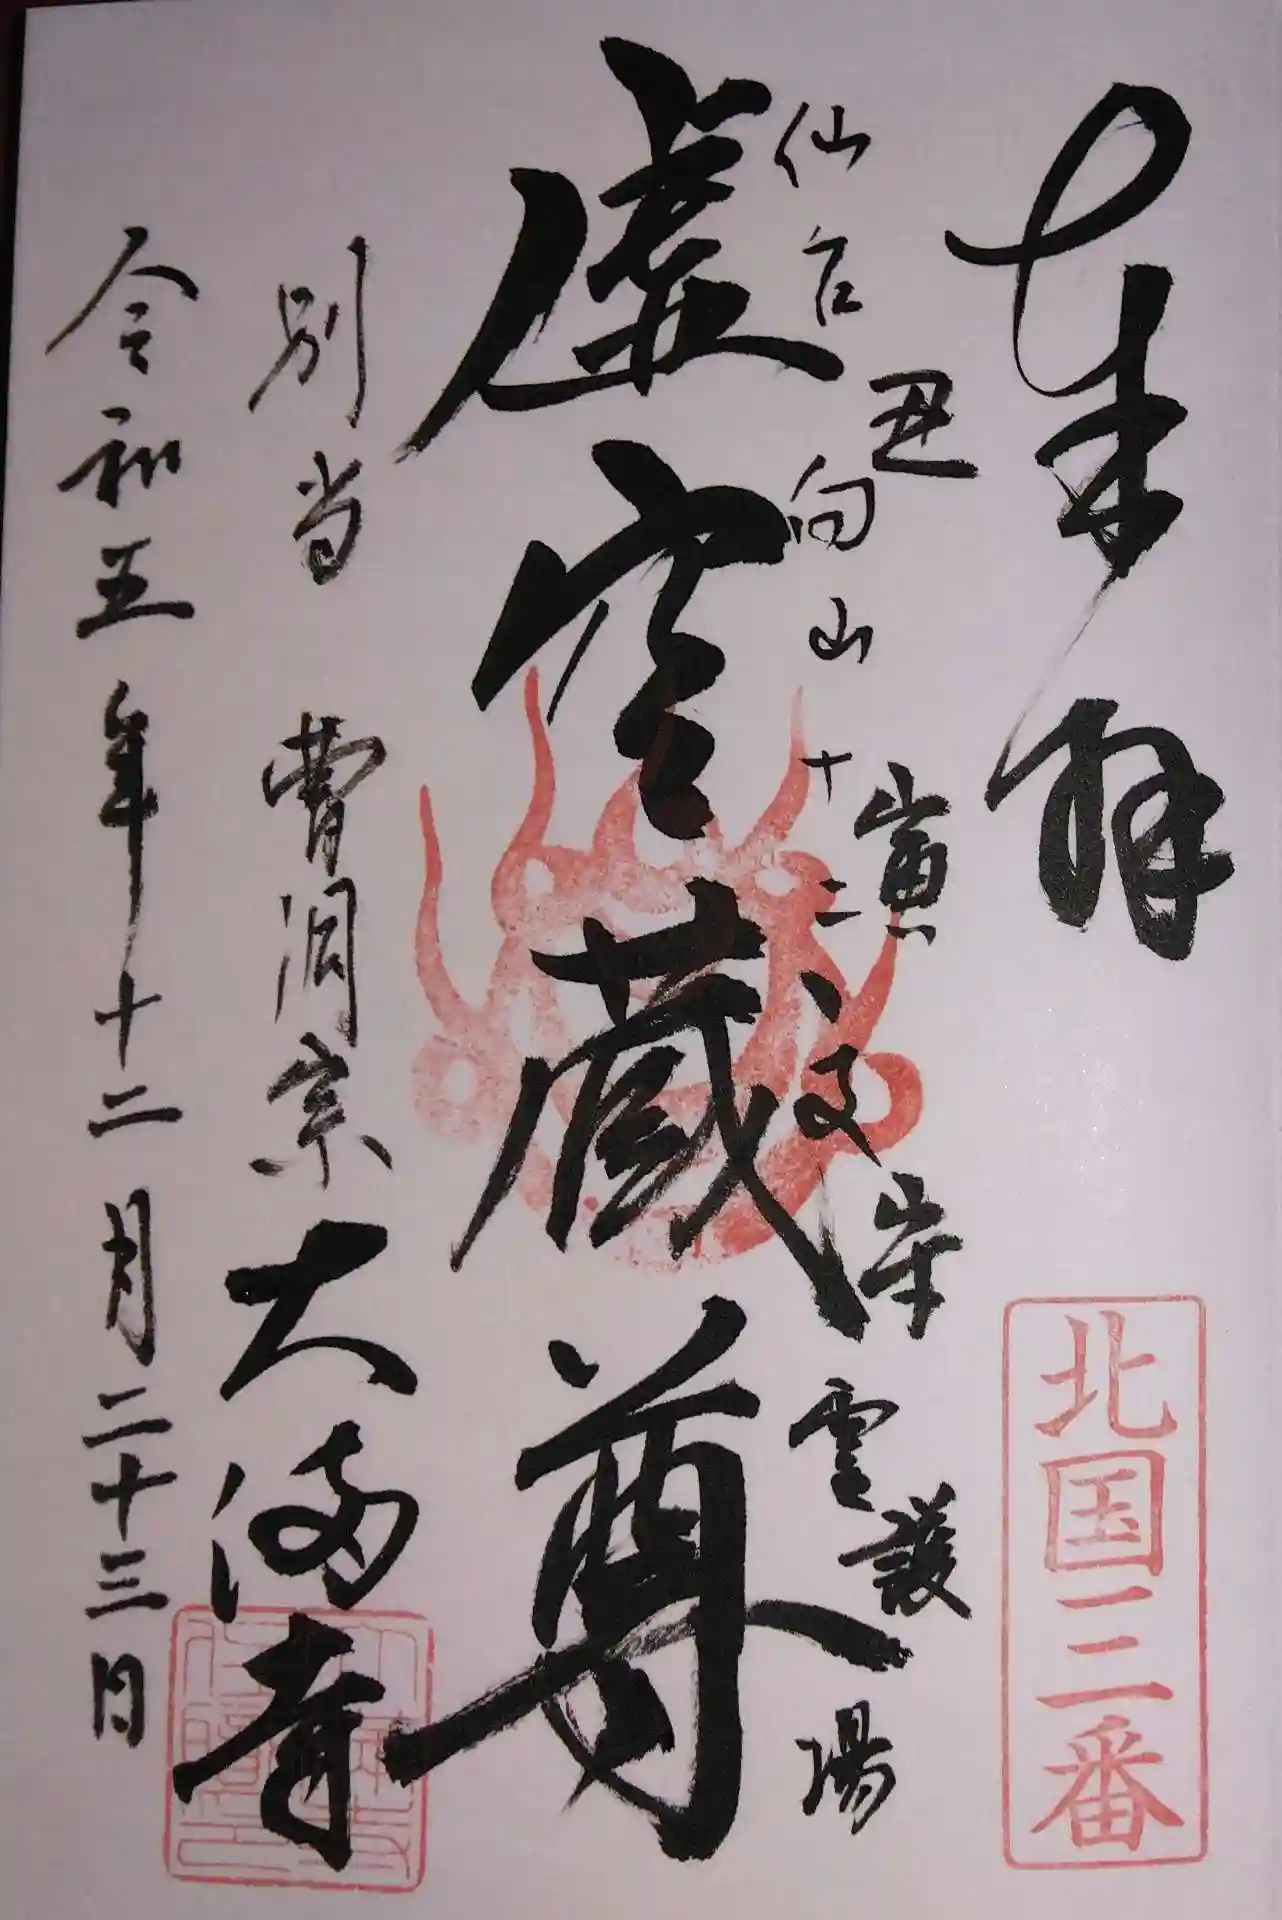 奉拝
北国三番
丑寅守護
仙台向山十二支霊場
虚空蔵尊
別当 曹洞宗大満寺
令和五年十二月二十三日